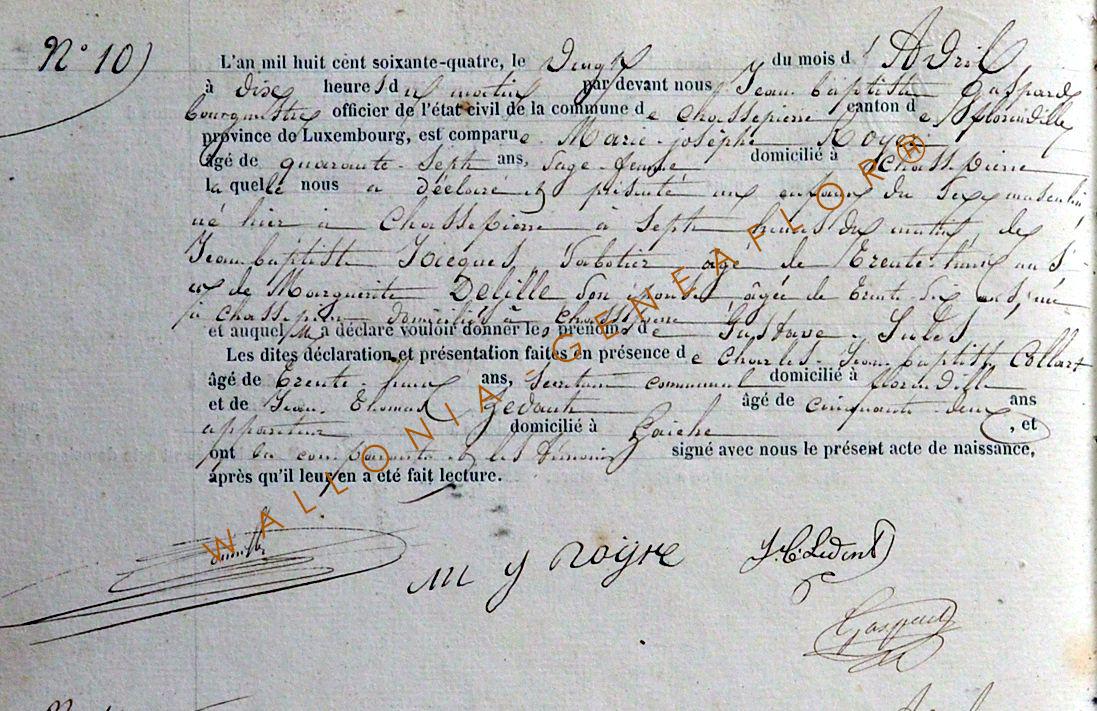 N° 10)
L'an mil huit cent soixante-quatre, le Vingt du mois d' Avril
à dixe heures du matin par devant nous Jean baptiste Gaspard
bourgmestre officier de l'état civil de la commune de Chassepierre canton de florenville
province de Luxembourg, est comparue Marie-josèphe Royer
âgé de quarante-sept ans, Sage-femme domicilié à Chassepierre
laquelle nous a déclaré et présenté un enfant du sexe masculin
né hier à Chassepierre à sept heures du matin, de
Jean baptiste Jacques, Sabotier âgé de Trente-huit ans
et de Marguerite Delille son épouse, âgée de trente-six ans, née
à Chassepierre domiciliés à Chassepierre
et auquel a déclaré vouloir donner les prénoms de Gustave-Jules
Les dites déclaration et présentation faites en présence de Charles-Jean baptiste Collart
âgé de Trente ans, Secrétaire communal domicilié à florenville
et de Jean Thomas âgé de cinquante-deux ans
appariteur domicilié à Laiche , et
ont la comparante et les témoins signé avec nous le présent acte de naissance,
après qu'il leur en a été fait lecture.
m j royre
Gaspard
WALLONIA-GENEAFLOR®